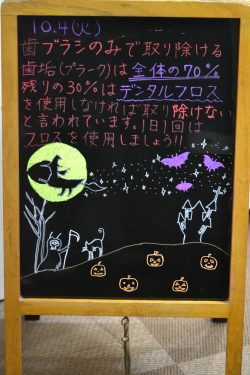 10.4(火)
歯ブラシのみで取り除ける
歯垢(プラーク)は全体の70%
残りの30%はデンタルフロス
を使用しなければ取り除けない
と言われています。1日1回は
フロスを使用しましょう!!